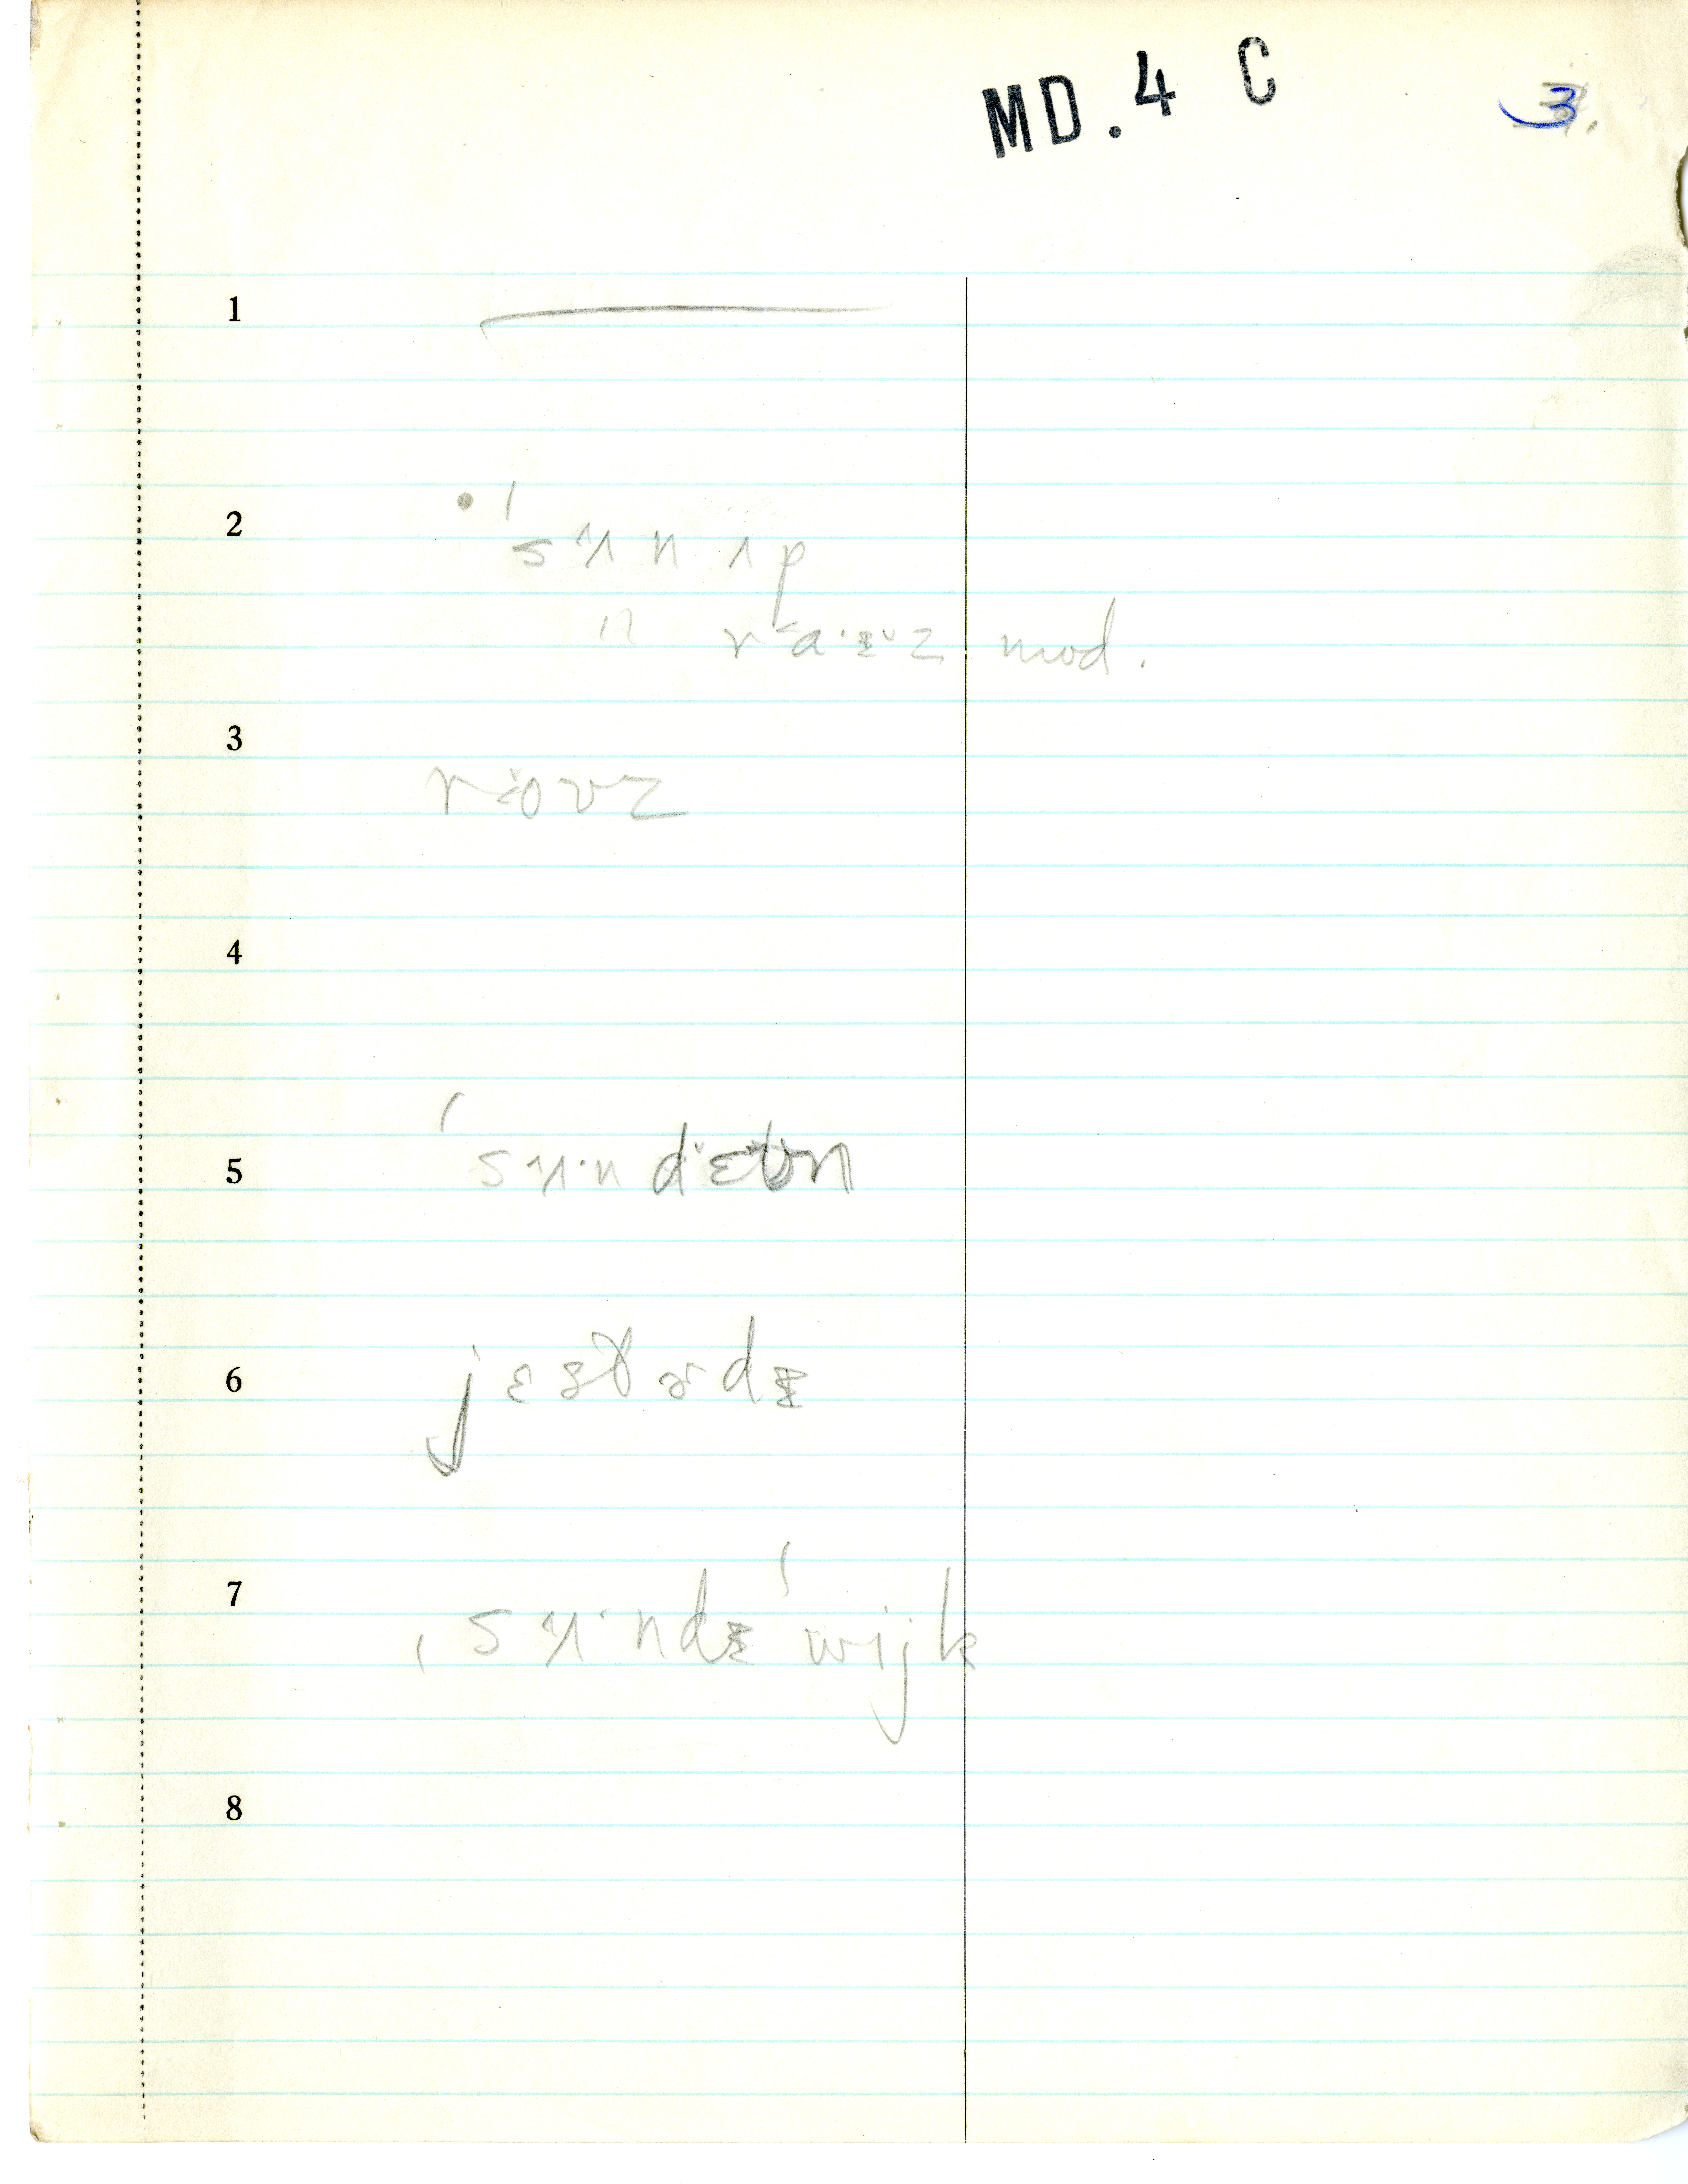 MD. 4 C
3
1
2
ˈsʌn ʌp
" raɪz mod.
3
rovz
4
5
ˈsʌ·n dɛʊn
6
jɛstɚdɪ
7
ˌsʌ·ndɪˈwijk
8